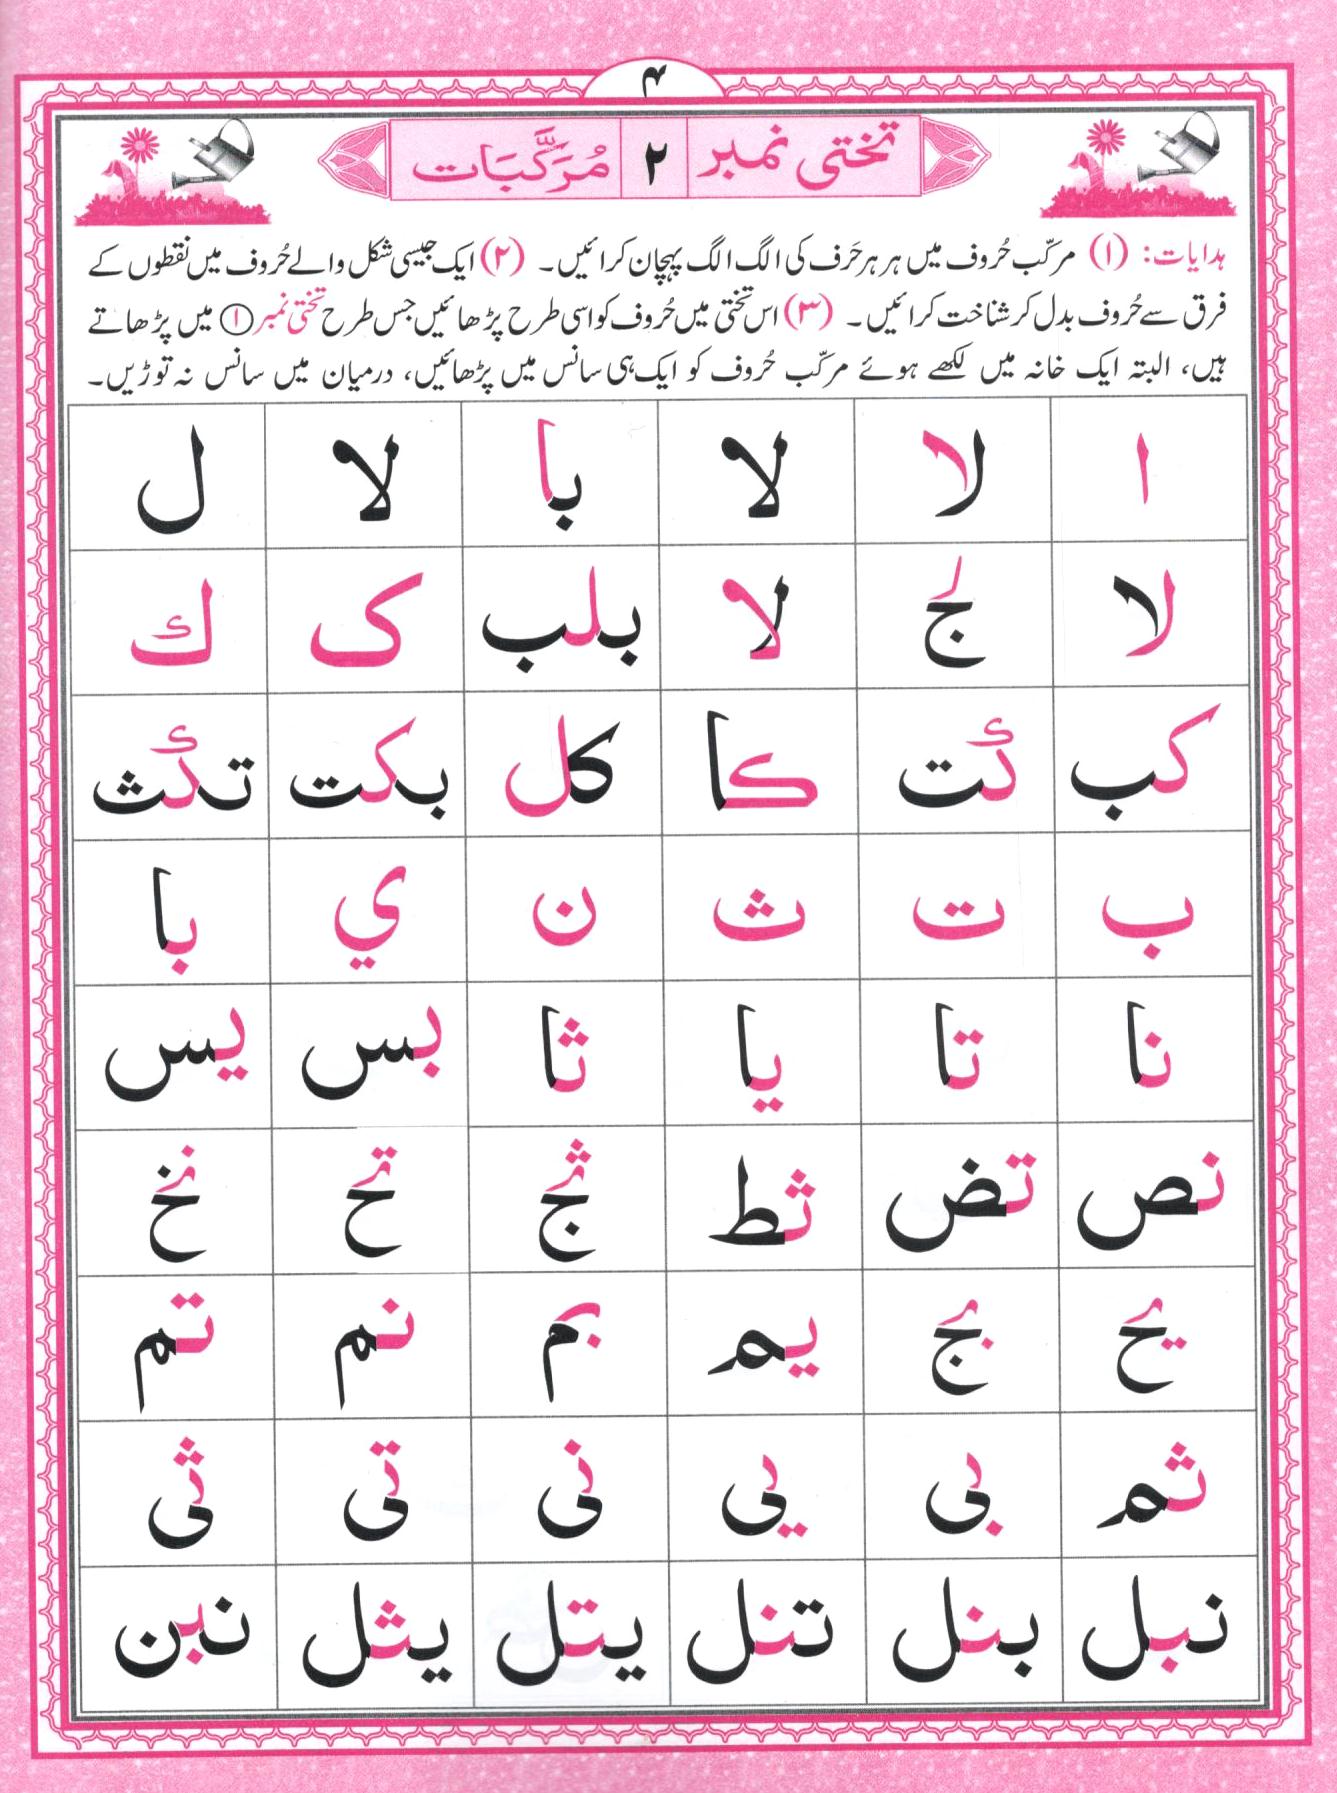 ۴
تختی نمبر ۲ مُرَکَّبَات
ہدایات: (۱) مرکّب حُروف میں ہر ہر حَرف کی الگ الگ پہچان کرائیں۔ (۲) ایک جیسی شکل والے حُروف میں نقطوں کے
فرق سے حُروف بدل کر شناخت کرائیں۔ (۳) اس تختی میں حُروف کو اسی طرح پڑھائیں جس طرح تختی نمبر ۱ میں پڑھاتے
ہیں، البتہ ایک خانہ میں لکھے ہوئے مرکّب حُروف کو ایک ہی سانس میں پڑھائیں، درمیان میں سانس نہ توڑیں۔
ا لا لا با لا ل
لا لج لا بلب ک ك
کب كت كا کل بکت تكث
ب ت ث ن ي با
نا تا یا ثا بس یس
نص تض ثط ثج تح نخ
یح بج یم بم نم تم
ثم بی یی نی تی ثی
نبل بنل تنل یتل یثل نبن